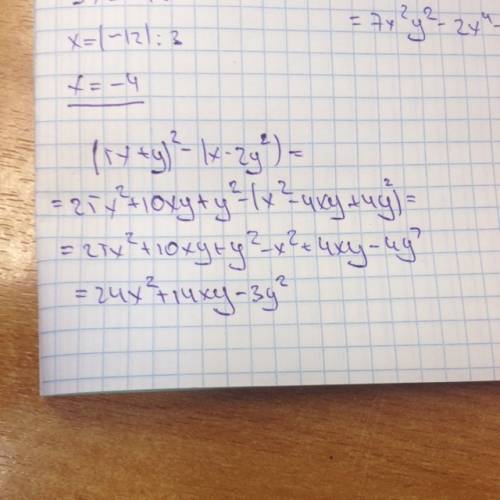 = 7x²y² - 2x⁴ -
x = (-12) : 3
x = -4
(5x + y)² - (x - 2y²) =
= 25x² + 10xy + y² - (x² - 4xy + 4y²) =
= 25x² + 10xy + y² - x² + 4xy - 4y²
= 24x² + 14xy - 3y²